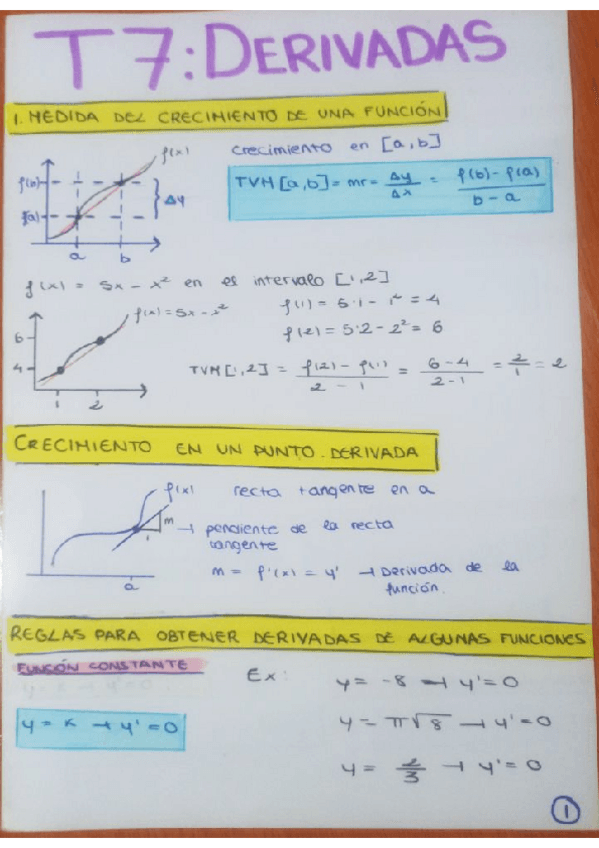 T7: DERIVADAS
1. MEDIDA DEL CRECIMIENTO DE UNA FUNCIÓN
f(x)
crecimiento en [a,b]
f(b)
f(a)
Δy
a b
TVM [a,b] = mr = Δy/Δx = f(b) - f(a) / b - a
f(x) = 5x - x² en el intervalo [1,2]
f(x) = 5x - x²
f(1) = 5·1 - 1² = 4
f(2) = 5·2 - 2² = 6
6
4
1 2
TVM [1,2] = f(2) - f(1) / 2 - 1 = 6-4 / 2-1 = 2/1 = 2
CRECIMIENTO EN UN PUNTO. DERIVADA
f(x)
recta tangente en a
m
1
a
→ pendiente de la recta
tangente
m = f'(x) = y' → Derivada de la
función.
REGLAS PARA OBTENER DERIVADAS DE ALGUNAS FUNCIONES
FUNCIÓN CONSTANTE
y = k → y' = 0
Ex:
y = -8 → y' = 0
y = π√8 → y' = 0
y = 2/3 → y' = 0
1